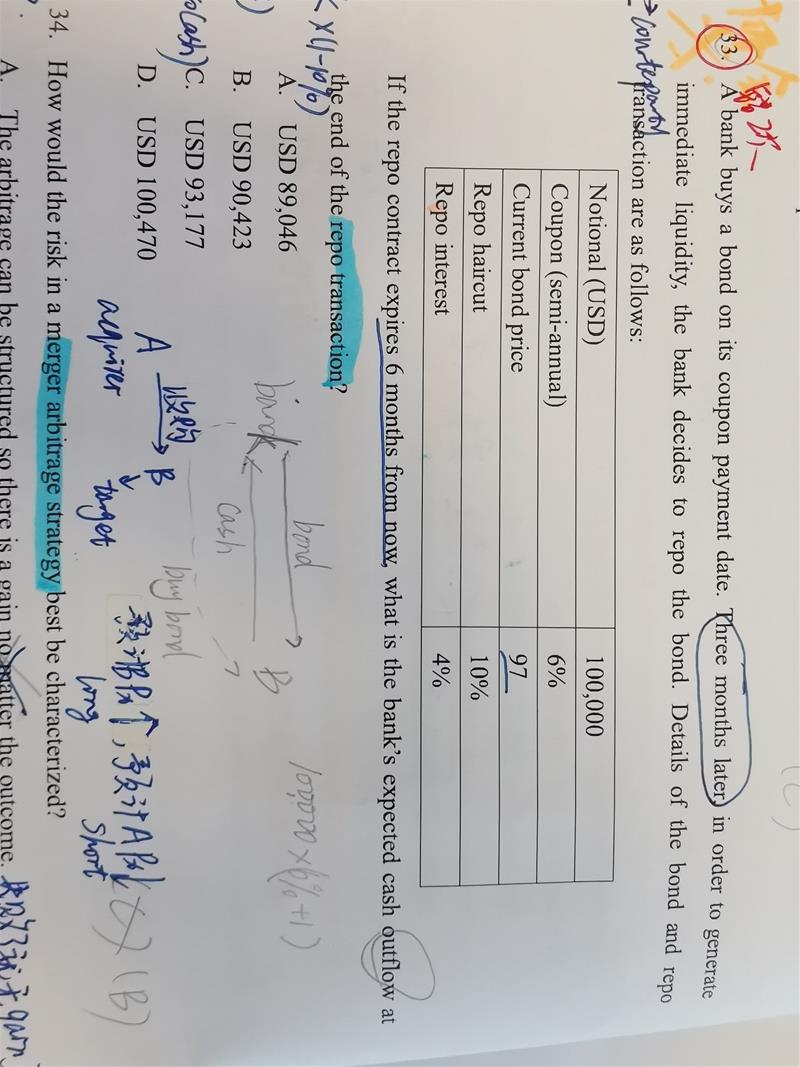 33. A bank buys a bond on its coupon payment date. Three months later, in order to generate
immediate liquidity, the bank decides to repo the bond. Details of the bond and repo
transaction are as follows:
Notional (USD) 100,000
Coupon (semi-annual) 6%
Current bond price 97
Repo haircut 10%
Repo interest 4%
If the repo contract expires 6 months from now, what is the bank's expected cash outflow at
the end of the repo transaction?
A. USD 89,046
B. USD 90,423
C. USD 93,177
D. USD 100,470
bond
bank
B
cash
buy bond
100,000×(6%+1)
A
收购
B
acquirer
target
预计B Px↑, 预计A Px↓
long
short
(B)
34. How would the risk in a merger arbitrage strategy best be characterized?
A. The arbitrage can be structured so there is a gain no matter the outcome.